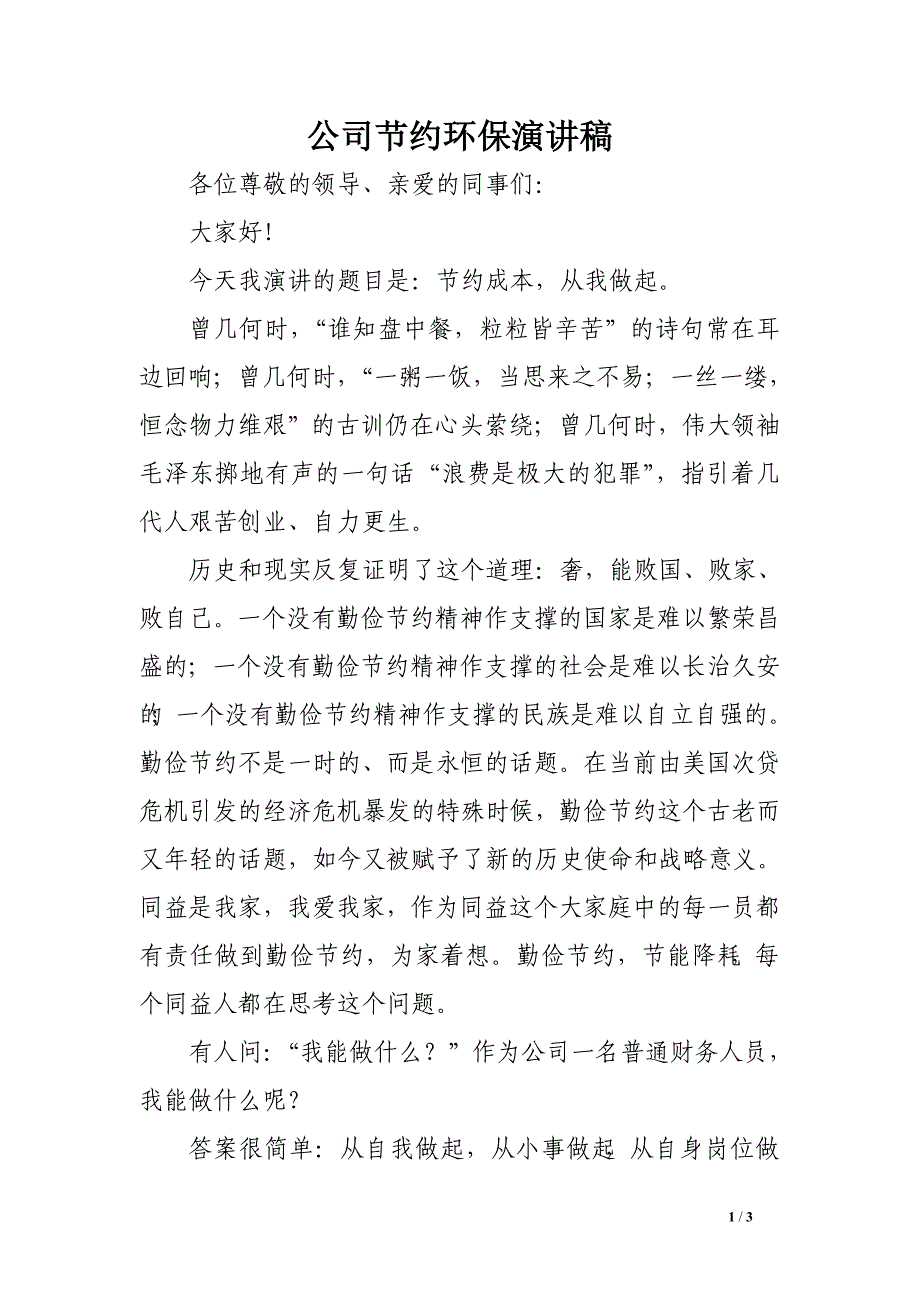 公司节约环保演讲稿
各位尊敬的领导、亲爱的同事们：
大家好！
今天我演讲的题目是：节约成本，从我做起。
曾几何时，“谁知盘中餐，粒粒皆辛苦”的诗句常在耳
边回响；曾几何时，“一粥一饭，当思来之不易；一丝一缕，
恒念物力维艰”的古训仍在心头萦绕；曾几何时，伟大领袖
毛泽东掷地有声的一句话“浪费是极大的犯罪”，指引着几
代人艰苦创业、自力更生。
历史和现实反复证明了这个道理：奢，能败国、败家、
败自己。一个没有勤俭节约精神作支撑的国家是难以繁荣昌
盛的；一个没有勤俭节约精神作支撑的社会是难以长治久安
的；一个没有勤俭节约精神作支撑的民族是难以自立自强的。
勤俭节约不是一时的、而是永恒的话题。在当前由美国次贷
危机引发的经济危机暴发的特殊时候，勤俭节约这个古老而
又年轻的话题，如今又被赋予了新的历史使命和战略意义。
同益是我家，我爱我家，作为同益这个大家庭中的每一员都
有责任做到勤俭节约，为家着想。勤俭节约，节能降耗，每
个同益人都在思考这个问题。
有人问：“我能做什么？”作为公司一名普通财务人员，
我能做什么呢？
答案很简单：从自我做起，从小事做起，从自身岗位做
1 / 3